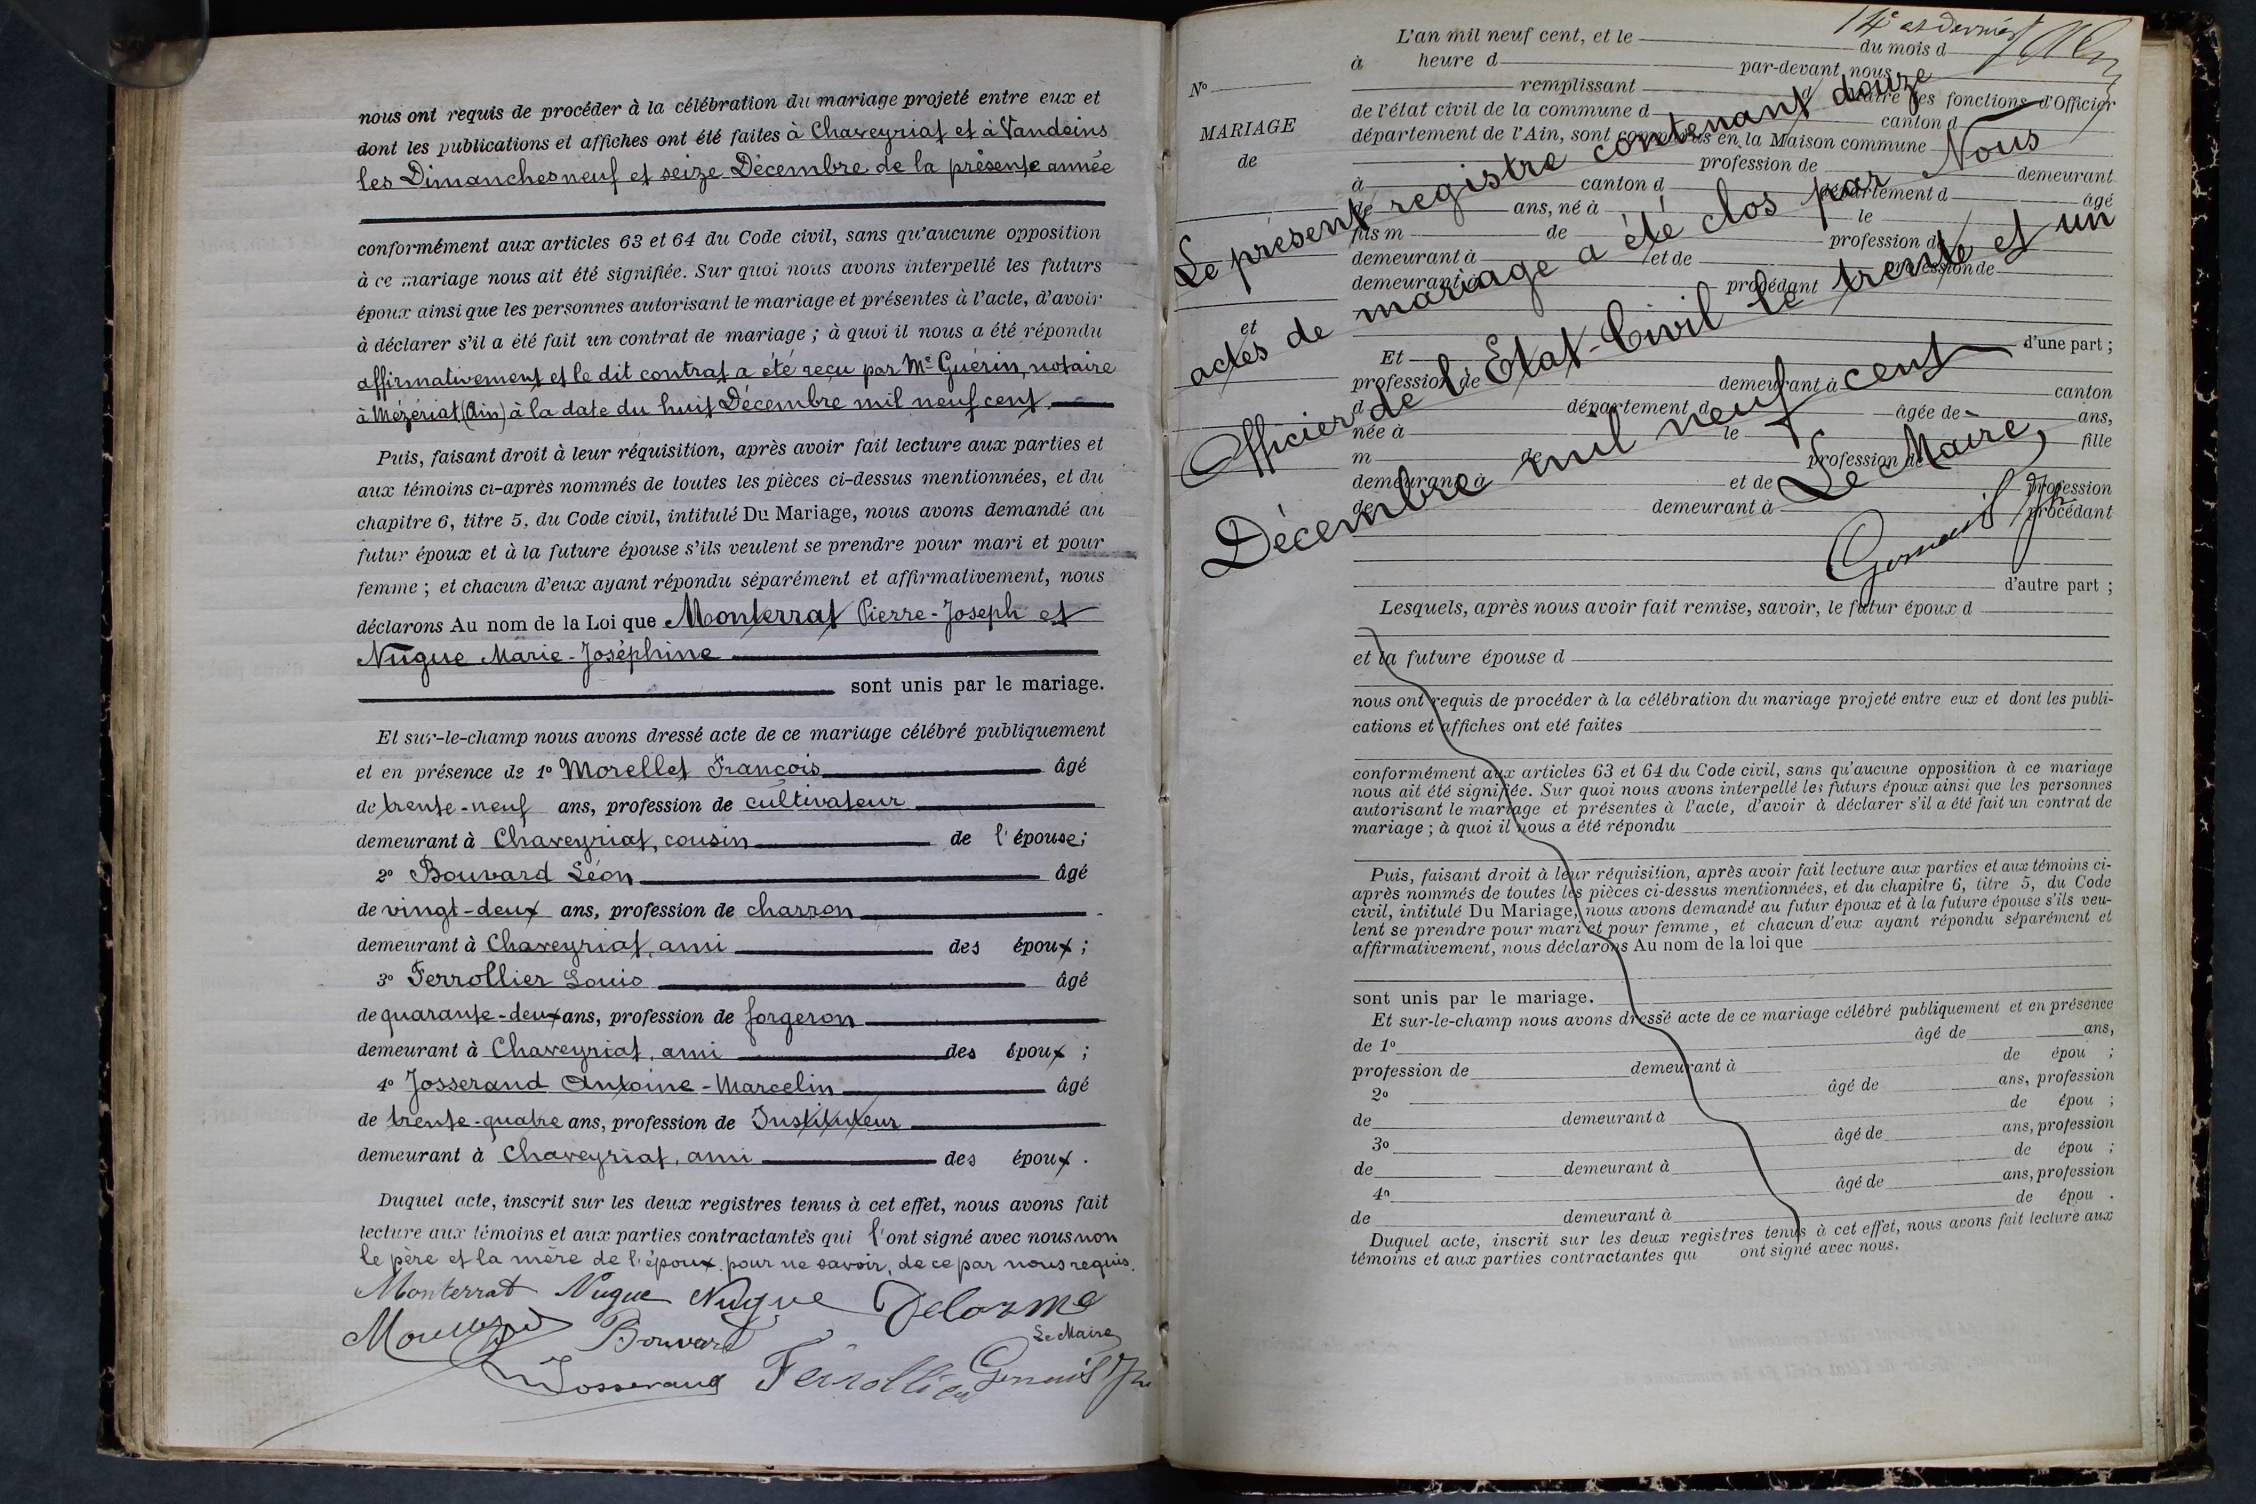 nous ont requis de procéder à la célébration du mariage projeté entre eux et
dont les publications et affiches ont été faites à Chaveyriat et à Vandeins
les Dimanches neuf et seize Décembre de la présente année
conformément aux articles 63 et 64 du Code civil, sans qu'aucune opposition
à ce mariage nous ait été signifiée. Sur quoi nous avons interpellé les futurs
époux ainsi que les personnes autorisant le mariage et présentes à l'acte, d'avoir
à déclarer s'il a été fait un contrat de mariage ; à quoi il nous a été répondu
affirmativement et le dit contrat a été reçu par Me Guérin, notaire
à Mézériat (Ain) à la date du huit Décembre mil neuf cent.
Puis, faisant droit à leur réquisition, après avoir fait lecture aux parties et
aux témoins ci-après nommés de toutes les pièces ci-dessus mentionnées, et du
chapitre 6, titre 5, du Code civil, intitulé Du Mariage, nous avons demandé au
futur époux et à la future épouse s'ils veulent se prendre pour mari et pour
femme ; et chacun d'eux ayant répondu séparément et affirmativement, nous
déclarons Au nom de la Loi que Monterrat Pierre-Joseph et
Nugue Marie-Joséphine
sont unis par le mariage.
Et sur-le-champ nous avons dressé acte de ce mariage célébré publiquement
et en présence de 1º Morellet François âgé
de trente-neuf ans, profession de cultivateur
demeurant à Chaveyriat, cousin de l'épouse;
2º Bouvard Léon âgé
de vingt-deux ans, profession de charron
demeurant à Chaveyriat, ami des époux ;
3º Ferrollier Louis âgé
de quarante-deux ans, profession de forgeron
demeurant à Chaveyriat, ami des époux ;
4º Josserand Antoine-Marcelin âgé
de trente-quatre ans, profession de Instituteur
demeurant à Chaveyriat, ami des époux.
Duquel acte, inscrit sur les deux registres tenus à cet effet, nous avons fait
lecture aux témoins et aux parties contractantes qui l'ont signé avec nous non
le père et la mère de l'époux pour ne savoir, de ce par nous requis.
Monterrat Nugue Nugue Delorme
Bouvard Le Maire
Josserand Ferrollier
14e et dernier
L'an mil neuf cent, et le du mois d
à heure d par-devant nous
Nº
remplissant d Maire les fonctions d'Officier
de l'état civil de la commune d canton d
MARIAGE
département de l'Ain, sont comparus en la Maison commune
de
profession de demeurant
à canton d département d âgé
de ans, né à le
fils m de profession de
demeurant à et de profession de
demeurant à procédant
et
d'une part ;
Et
profession de demeurant à canton
d département d âgée de ans,
née à le fille
m de profession de
demeurant à et de profession
de demeurant à procédant
d'autre part ;
Le présent registre contenant douze
actes de mariage a été clos par Nous
Officier de l'Etat-Civil le trente et un
Décembre mil neuf cent
Le Maire,
Lesquels, après nous avoir fait remise, savoir, le futur époux d
et la future épouse d
nous ont requis de procéder à la célébration du mariage projeté entre eux et dont les publi-
cations et affiches ont eté faites
conformément aux articles 63 et 64 du Code civil, sans qu'aucune opposition à ce mariage
nous ait été signifiée. Sur quoi nous avons interpellé les futurs époux ainsi que les personnes
autorisant le mariage et présentes à l'acte, d'avoir à déclarer s'il a été fait un contrat de
mariage ; à quoi il nous a été répondu
Puis, faisant droit à leur réquisition, après avoir fait lecture aux parties et aux témoins ci-
après nommés de toutes les pièces ci-dessus mentionnées, et du chapitre 6, titre 5, du Code
civil, intitulé Du Mariage, nous avons demandé au futur époux et à la future épouse s'ils veu-
lent se prendre pour mari et pour femme, et chacun d'eux ayant répondu séparément et
affirmativement, nous déclarons Au nom de la loi que
sont unis par le mariage.
Et sur-le-champ nous avons dressé acte de ce mariage célébré publiquement et en présence
de 1º âgé de ans,
profession de demeurant à de épou ;
2º âgé de ans, profession
de demeurant à de épou ;
3º âgé de ans, profession
de demeurant à de épou ;
4º âgé de ans, profession
de demeurant à de épou .
Duquel acte, inscrit sur les deux registres tenus à cet effet, nous avons fait lecture aux
témoins et aux parties contractantes qui ont signé avec nous.